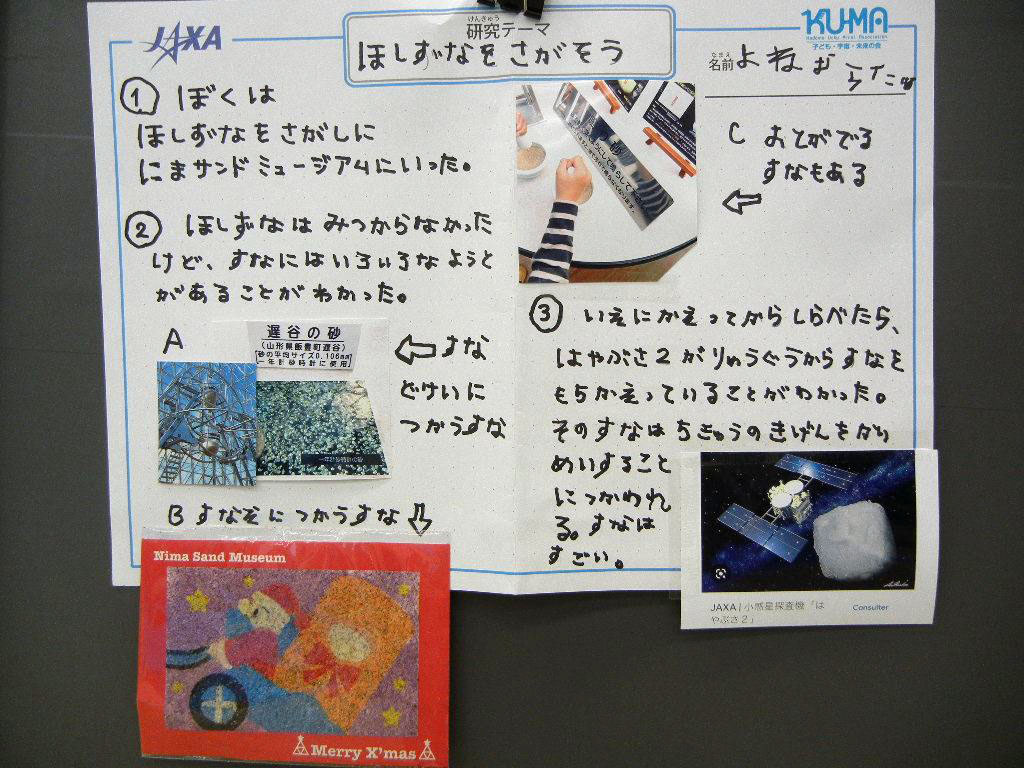 JAXA
けんきゅう
研究テーマ
ほしずなをさがそう
KU-MA
子ども・宇宙・未来の会
なまえ
名前
① ぼくは
ほしずなをさがしに
にまサンドミュージアムにいった。
② ほしずなはみつからなかった
けど、すなにはいろいろなようと
があることがわかった。
A
遅谷の砂
(山形県飯豊町遅谷)
砂の平均サイズ0.106mm
一年計砂時計に使用
一年計砂時計の砂
⇦すな
どけいに
つかうすな
B すなえにつかうすな⇩
Nima Sand Museum
Merry X'mas
C おとがでる
すなもある
⇦
③ いえにかえってからしらべたら、
はやぶさ2がりゅうぐうからすなを
もちかえっていることがわかった。
そのすなはちきゅうのきげんをかい
めいすること
につかわれ
る。すなは
すごい。
JAXA | 小惑星探査機「は
やぶさ2」
Consulter